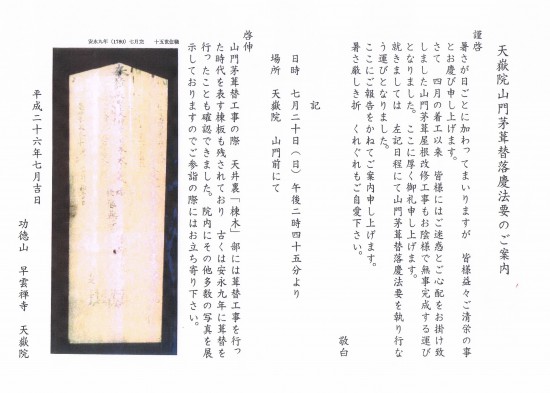 天嶽院山門茅葺替落慶法要のご案内
謹啓
暑さが日ごとに加わってまいりますが　皆様益々ご清栄の事
とお慶び申し上げます。
さて　四月の着工以来　皆様にはご迷惑とご心配をお掛け致
しました山門茅葺屋根改修工事もお陰様で無事完成する運び
となりました。ここに厚く御礼申し上げます。
就きましては　左記日程にて山門茅葺替落慶法要を執り行な
う運びとなりました。
ここにご報告をかねてご案内申し上げます。
暑さ厳しき折　くれぐれもご自愛下さい。
敬白
記
日時　七月二十日（日）午後二時四十五分より
場所　天嶽院　山門前にて
啓伸
山門茅葺替工事の際　天井裏「棟木」部には葺替工事を行っ
た時代を表す棟板も残されており　古くは安永九年に葺替を
行ったことも確認できました。院内にその他多数の写真を展
示しておりますのでご参詣の際にはお立ち寄り下さい。
安永九年（1780）七月吉　十五世住職
平成二十六年七月吉日
功徳山　早雲禅寺　天嶽院